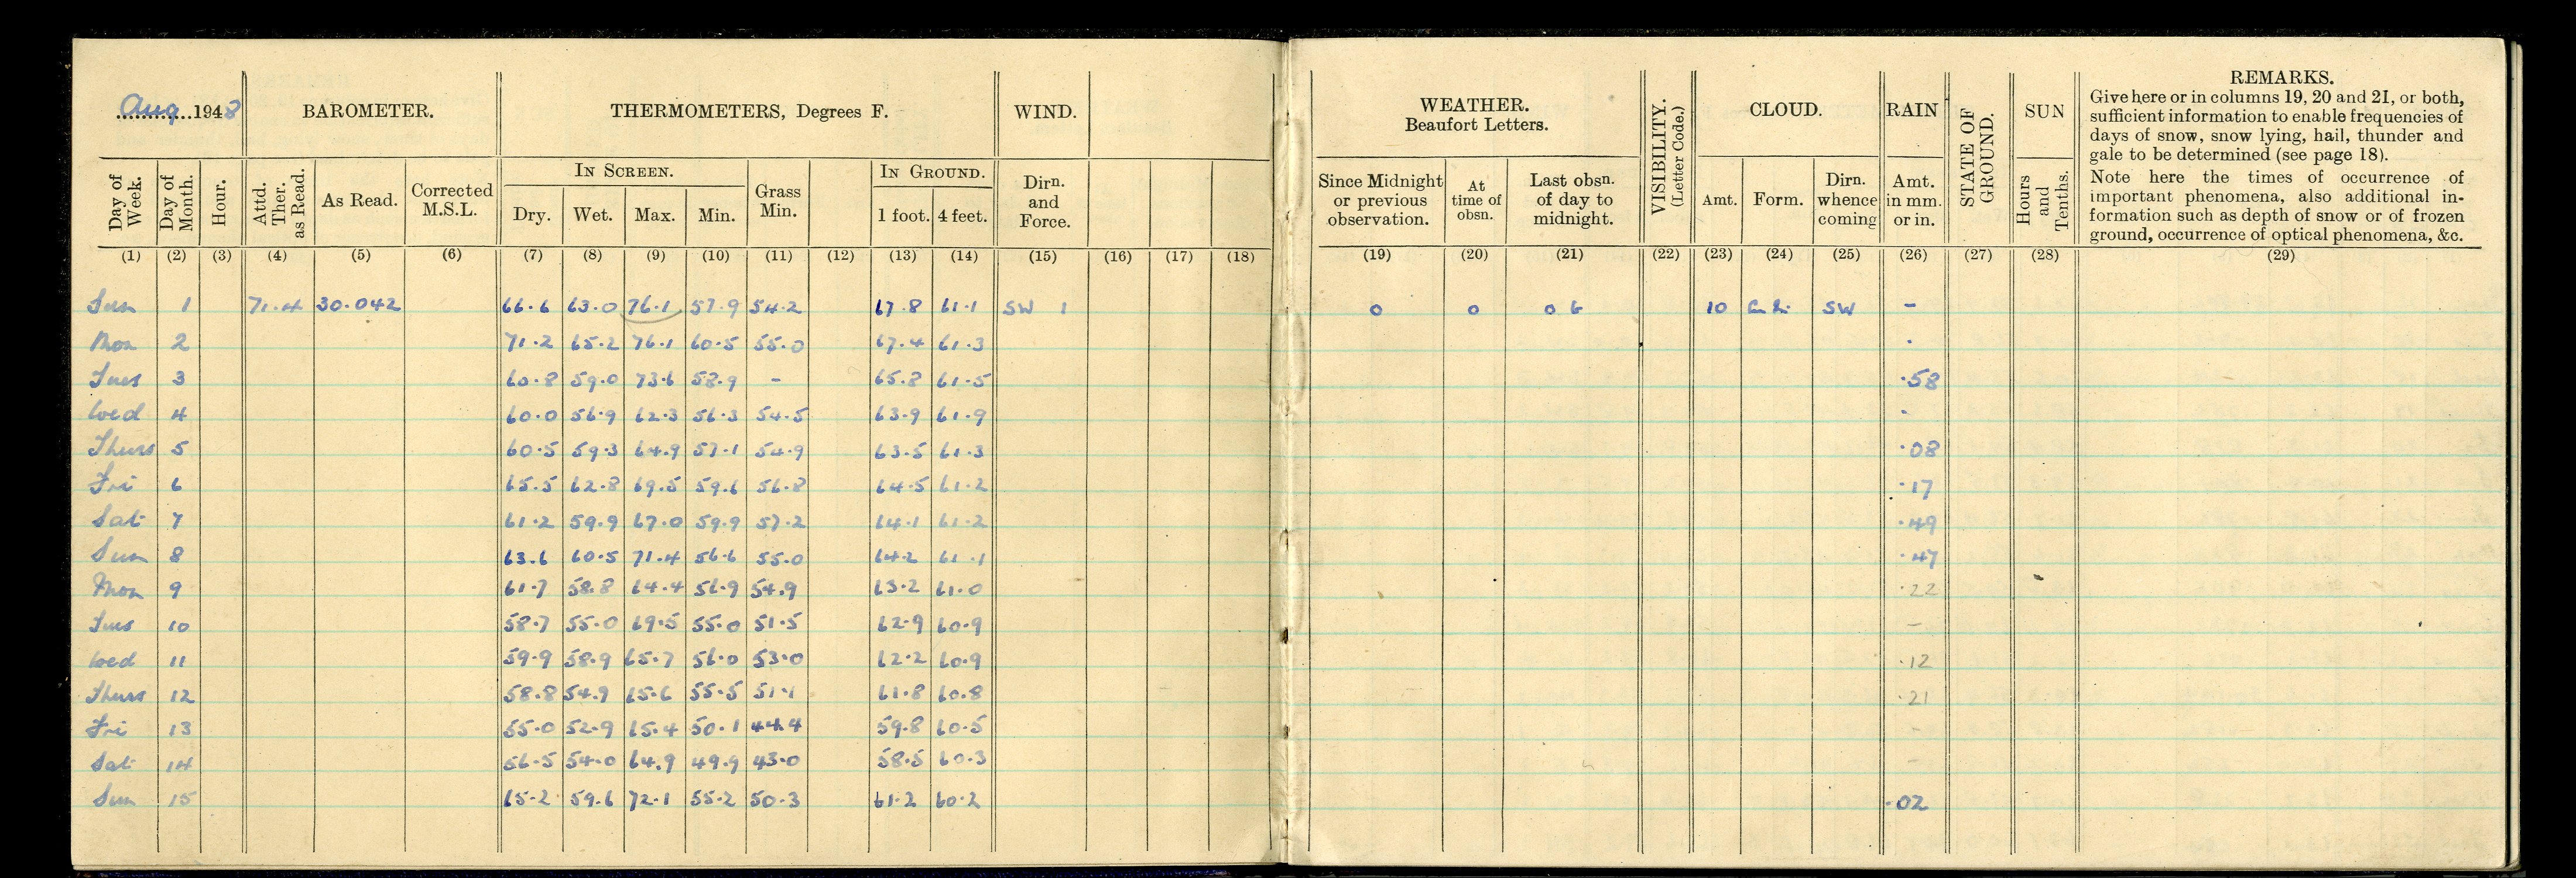 Aug 1948 BAROMETER. THERMOMETERS, Degrees F. WIND. WEATHER. Beaufort Letters. VISIBILITY. (Letter Code.) CLOUD. RAIN STATE OF GROUND. SUN REMARKS.
Give here or in columns 19, 20 and 21, or both,
sufficient information to enable frequencies of
days of snow, snow lying, hail, thunder and
gale to be determined (see page 18).
Note here the times of occurrence of
important phenomena, also additional in-
formation such as depth of snow or of frozen
ground, occurrence of optical phenomena, &c.
Day of Week. Day of Month. Hour. Attd. Ther. as Read. As Read. Corrected M.S.L. IN SCREEN. Dry. Wet. Max. Min. Grass Min. IN GROUND. 1 foot. 4 feet. Dirn. and Force. Since Midnight or previous observation. At time of obsn. Last obsn. of day to midnight. Amt. Form. Dirn. whence coming Amt. in mm. or in. Hours and Tenths.
(1) (2) (3) (4) (5) (6) (7) (8) (9) (10) (11) (12) (13) (14) (15) (16) (17) (18) (19) (20) (21) (22) (23) (24) (25) (26) (27) (28) (29)
Sun 1 71.4 30.042 66.6 63.0 76.1 57.9 54.2 67.8 61.1 SW 1 o o o b 10 SW -
Mon 2 71.2 65.2 76.1 60.5 55.0 67.4 61.3 .
Tues 3 60.8 59.0 73.6 58.9 - 65.8 61.5 .58
Wed 4 60.0 56.9 62.3 56.3 54.5 63.9 61.9 .
Thurs 5 60.5 59.3 64.9 57.1 54.9 63.5 61.3 .08
Fri 6 65.5 62.8 69.5 59.6 56.8 64.5 61.2 .17
Sat 7 61.2 59.9 67.0 59.9 57.2 64.1 61.2 .49
Sun 8 63.6 60.5 71.4 56.6 55.0 64.2 61.1 .47
Mon 9 61.7 58.8 64.4 56.9 54.9 63.2 61.0 .22
Tues 10 58.7 55.0 69.5 55.0 51.5 62.9 60.9 -
Wed 11 59.9 58.9 65.7 56.0 53.0 62.2 60.9 .12
Thurs 12 58.8 54.9 65.6 55.5 51.1 61.8 60.8 .21
Fri 13 55.0 52.9 65.4 50.1 44.4 59.8 60.5 -
Sat 14 56.5 54.0 64.9 49.9 43.0 58.5 60.3 -
Sun 15 65.2 59.6 72.1 55.2 50.3 61.2 60.2 .02